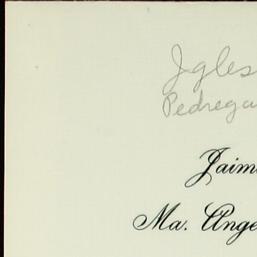 Igles
Pedrega
Jaim
Ma. Ange